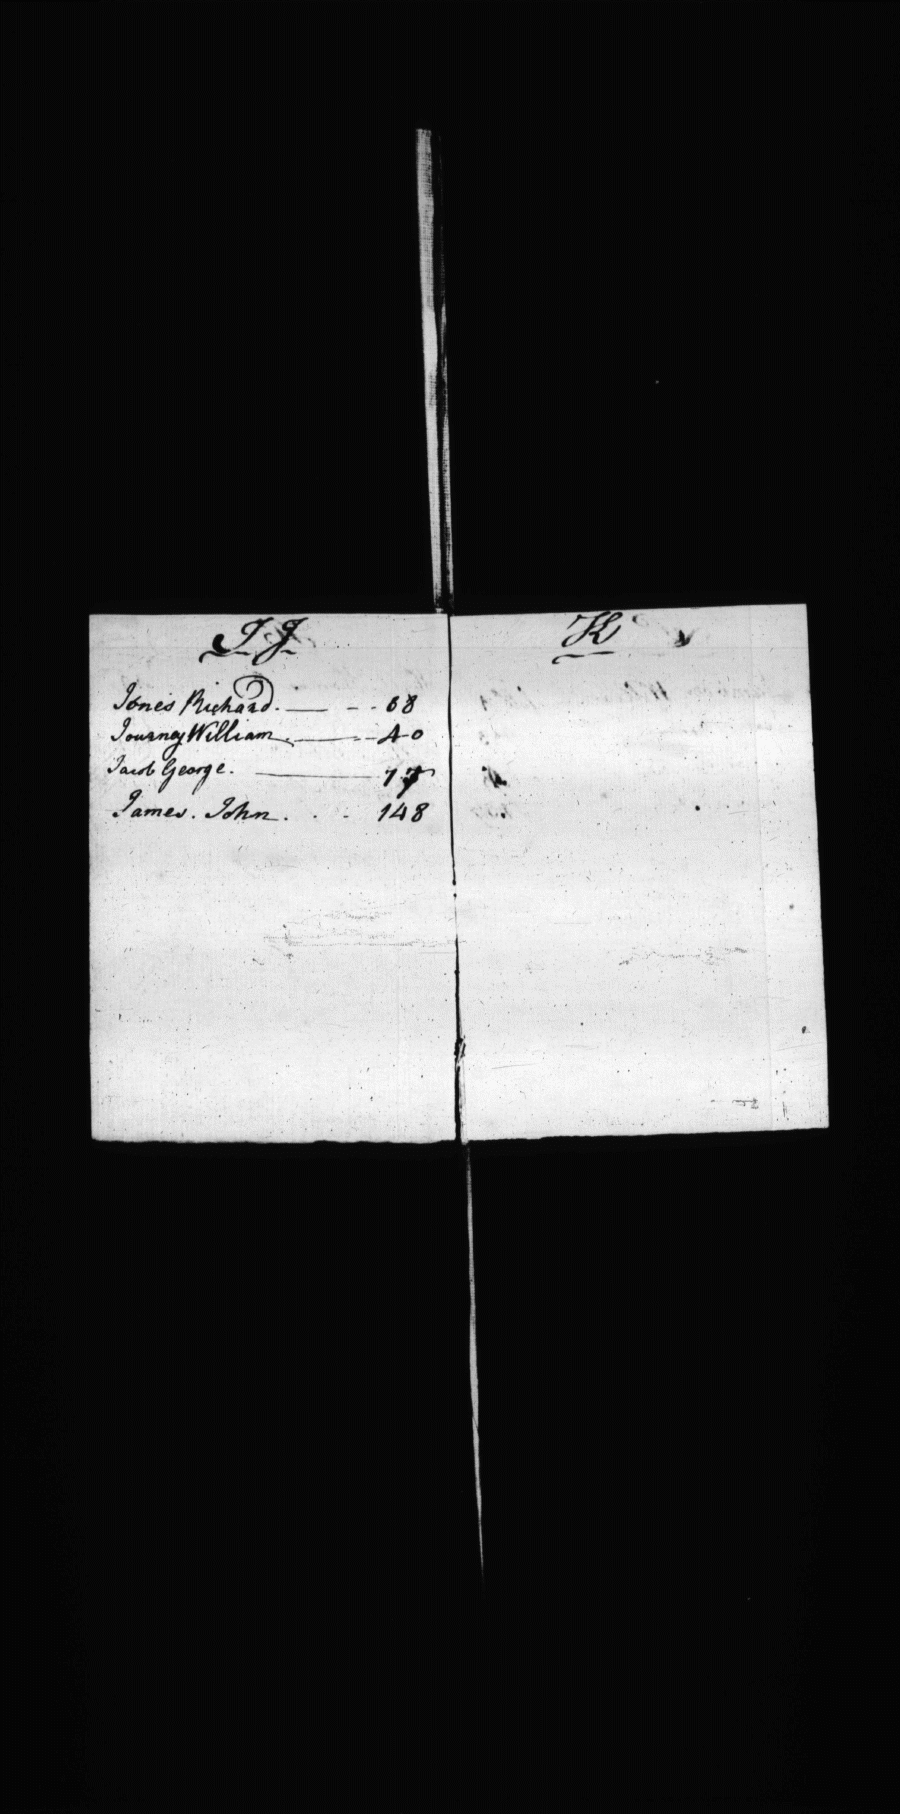 I J
Jones Richard. — - - 68
Journey William. — - - 40
Jacob George. — 77
James. John. . . . 148
K